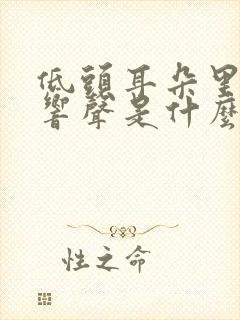 低頭耳朵里
響聲是什麼
性之命